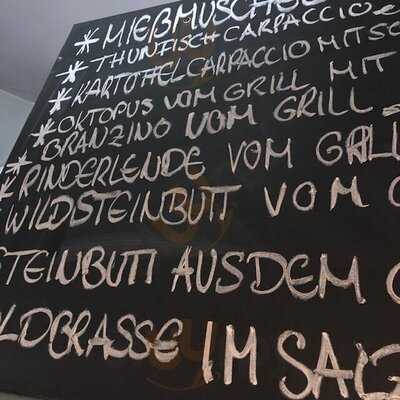 * MIEßMUSCHEL
* THUNFISCH CARPACCIO
* KARTOFFELCARPACCIO MIT SC
* OKTOPUS VOM GRILL MIT
* BRANZINO VOM GRILL
* RINDERLENDE VOM GRILL
WILDSTEINBUTT VOM G
STEINBUTT AUS DEM O
LDBRASSE IM SALZ